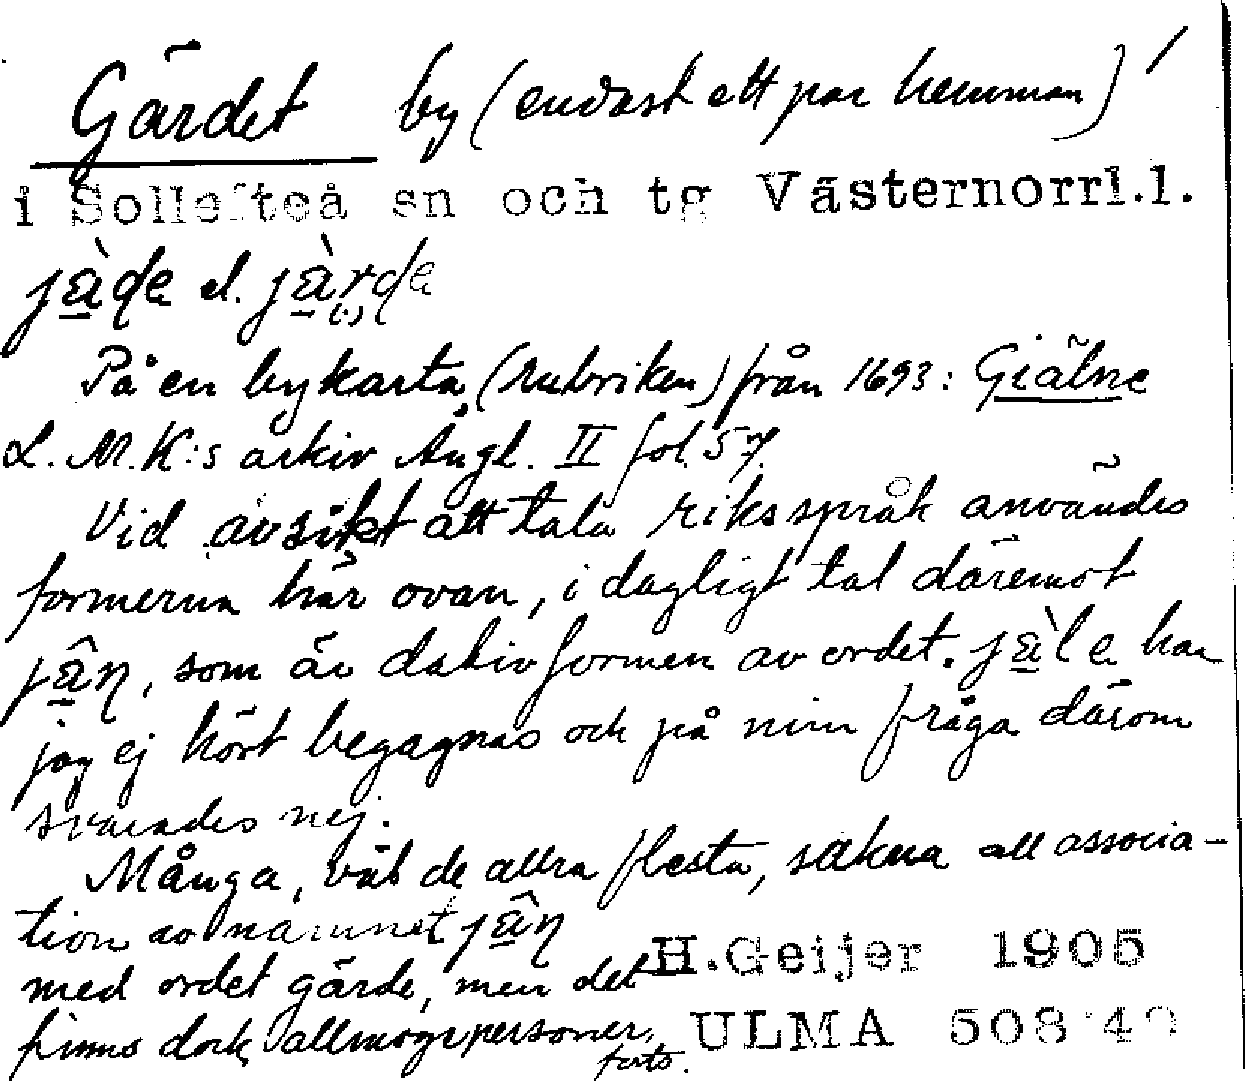 Gärdet by (endast ett par hemman)
i Sollefteå sn och tg Västernorrl.l.
jæ̀ɖe el. jæ̀rɖe
På en bykarta (rubriken) från 1693: Giälne
L.M.K:s arkiv Ångl. II fol. 57.
Vid avsikt att tala riksspråk användes
formerna här ovan, i dagligt tal däremot
jæ̂ɳ, som är dativformen av ordet. jæ̀le har
jag ej hört begagnas och på min fråga därom
svarades nej.
Många, väl de allra flesta, sakna all associa-
tion av namnet jæ̂ɳ
med ordet gärde, men det
finns dock allmogepersoner,
forts.
H.Geijer 1905
ULMA 508:40